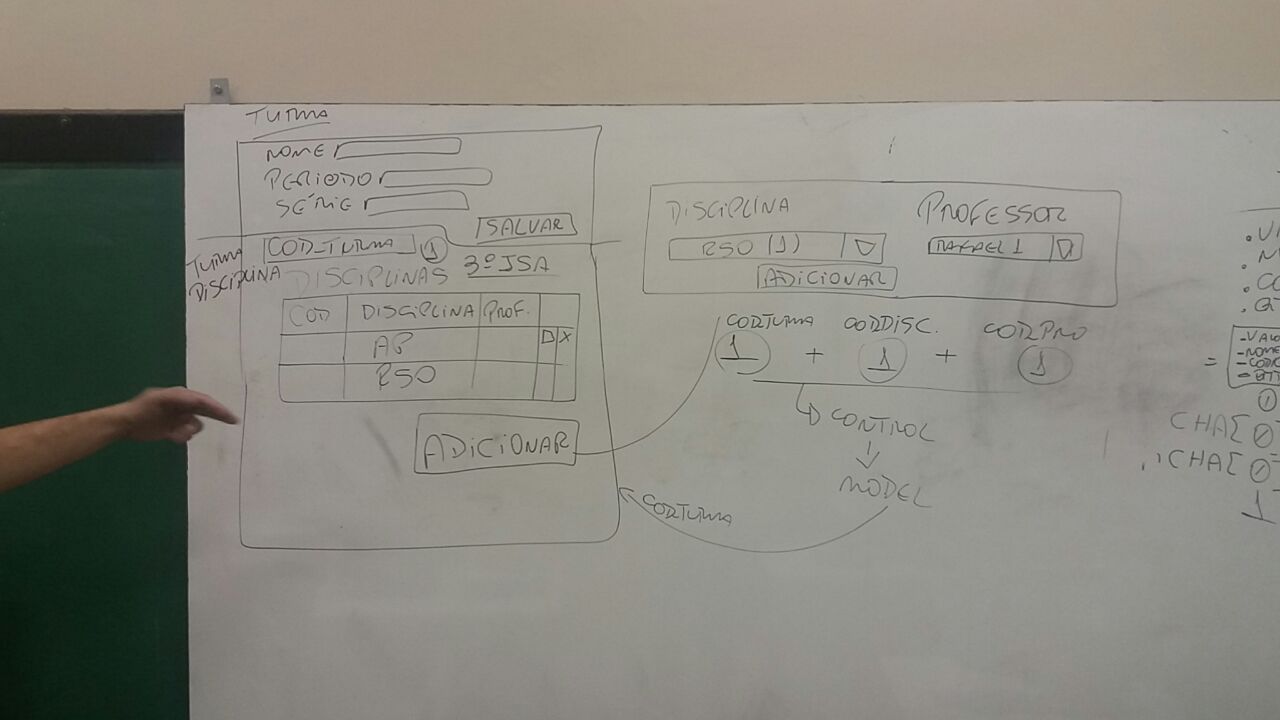 TURMA
NOME
PERIODO
SÉRIE
SALVAR
TURMA
DISCIPLINA
COD_TURMA 1
DISCIPLINAS 3º ISA
COD DISCIPLINA PROF.
AP D X
RSO
ADICIONAR
DISCIPLINA PROFESSOR
RSO (1) RAFAEL 1
ADICIONAR
CODTURMA CODDISC. CODPRO
1 + 1 + 1
CONTROL
MODEL
CODTURMA
=
-VALO
-NOME
1
CHAE 0
CHAE 0
1